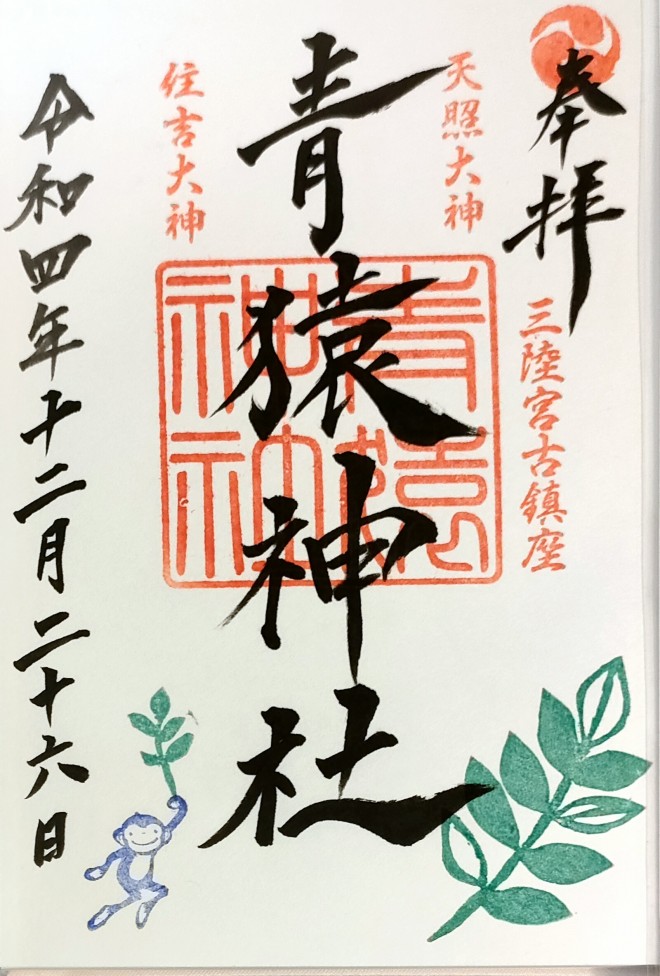 奉拝
三陸宮古鎮座
天照大神
青猿神社
青猿神社
住吉大神
令和四年十二月二十六日